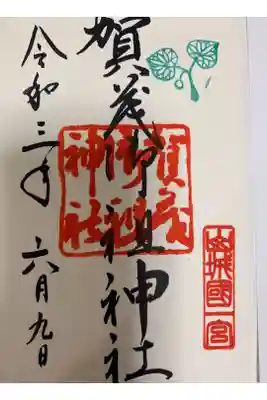 山城國一宮
賀茂御祖神社
賀茂御祖神社
令和三年 六月九日